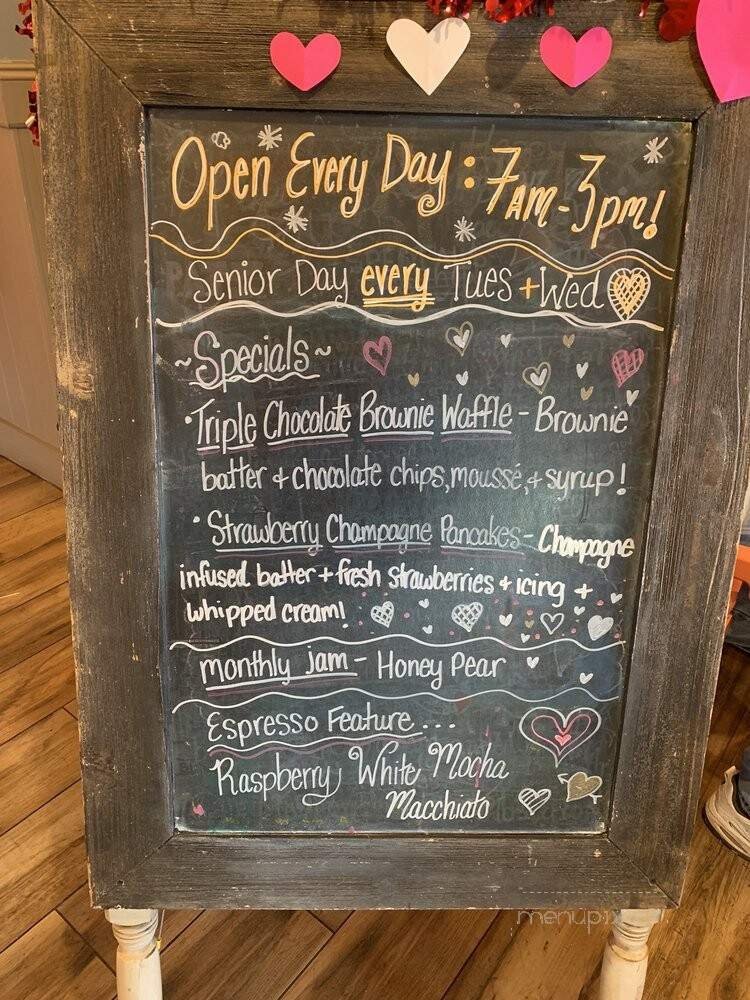 Open Every Day: 7AM-3pm!
Senior Day every Tues + Wed
~Specials~
•Triple Chocolate Brownie Waffle - Brownie
batter + chocolate chips, moussé, + syrup!
• Strawberry Champagne Pancakes - Champagne
infused batter + fresh strawberries + icing +
whipped cream!
monthly jam - Honey Pear
Espresso Feature...
Raspberry White Mocha
Macchiato
menupix